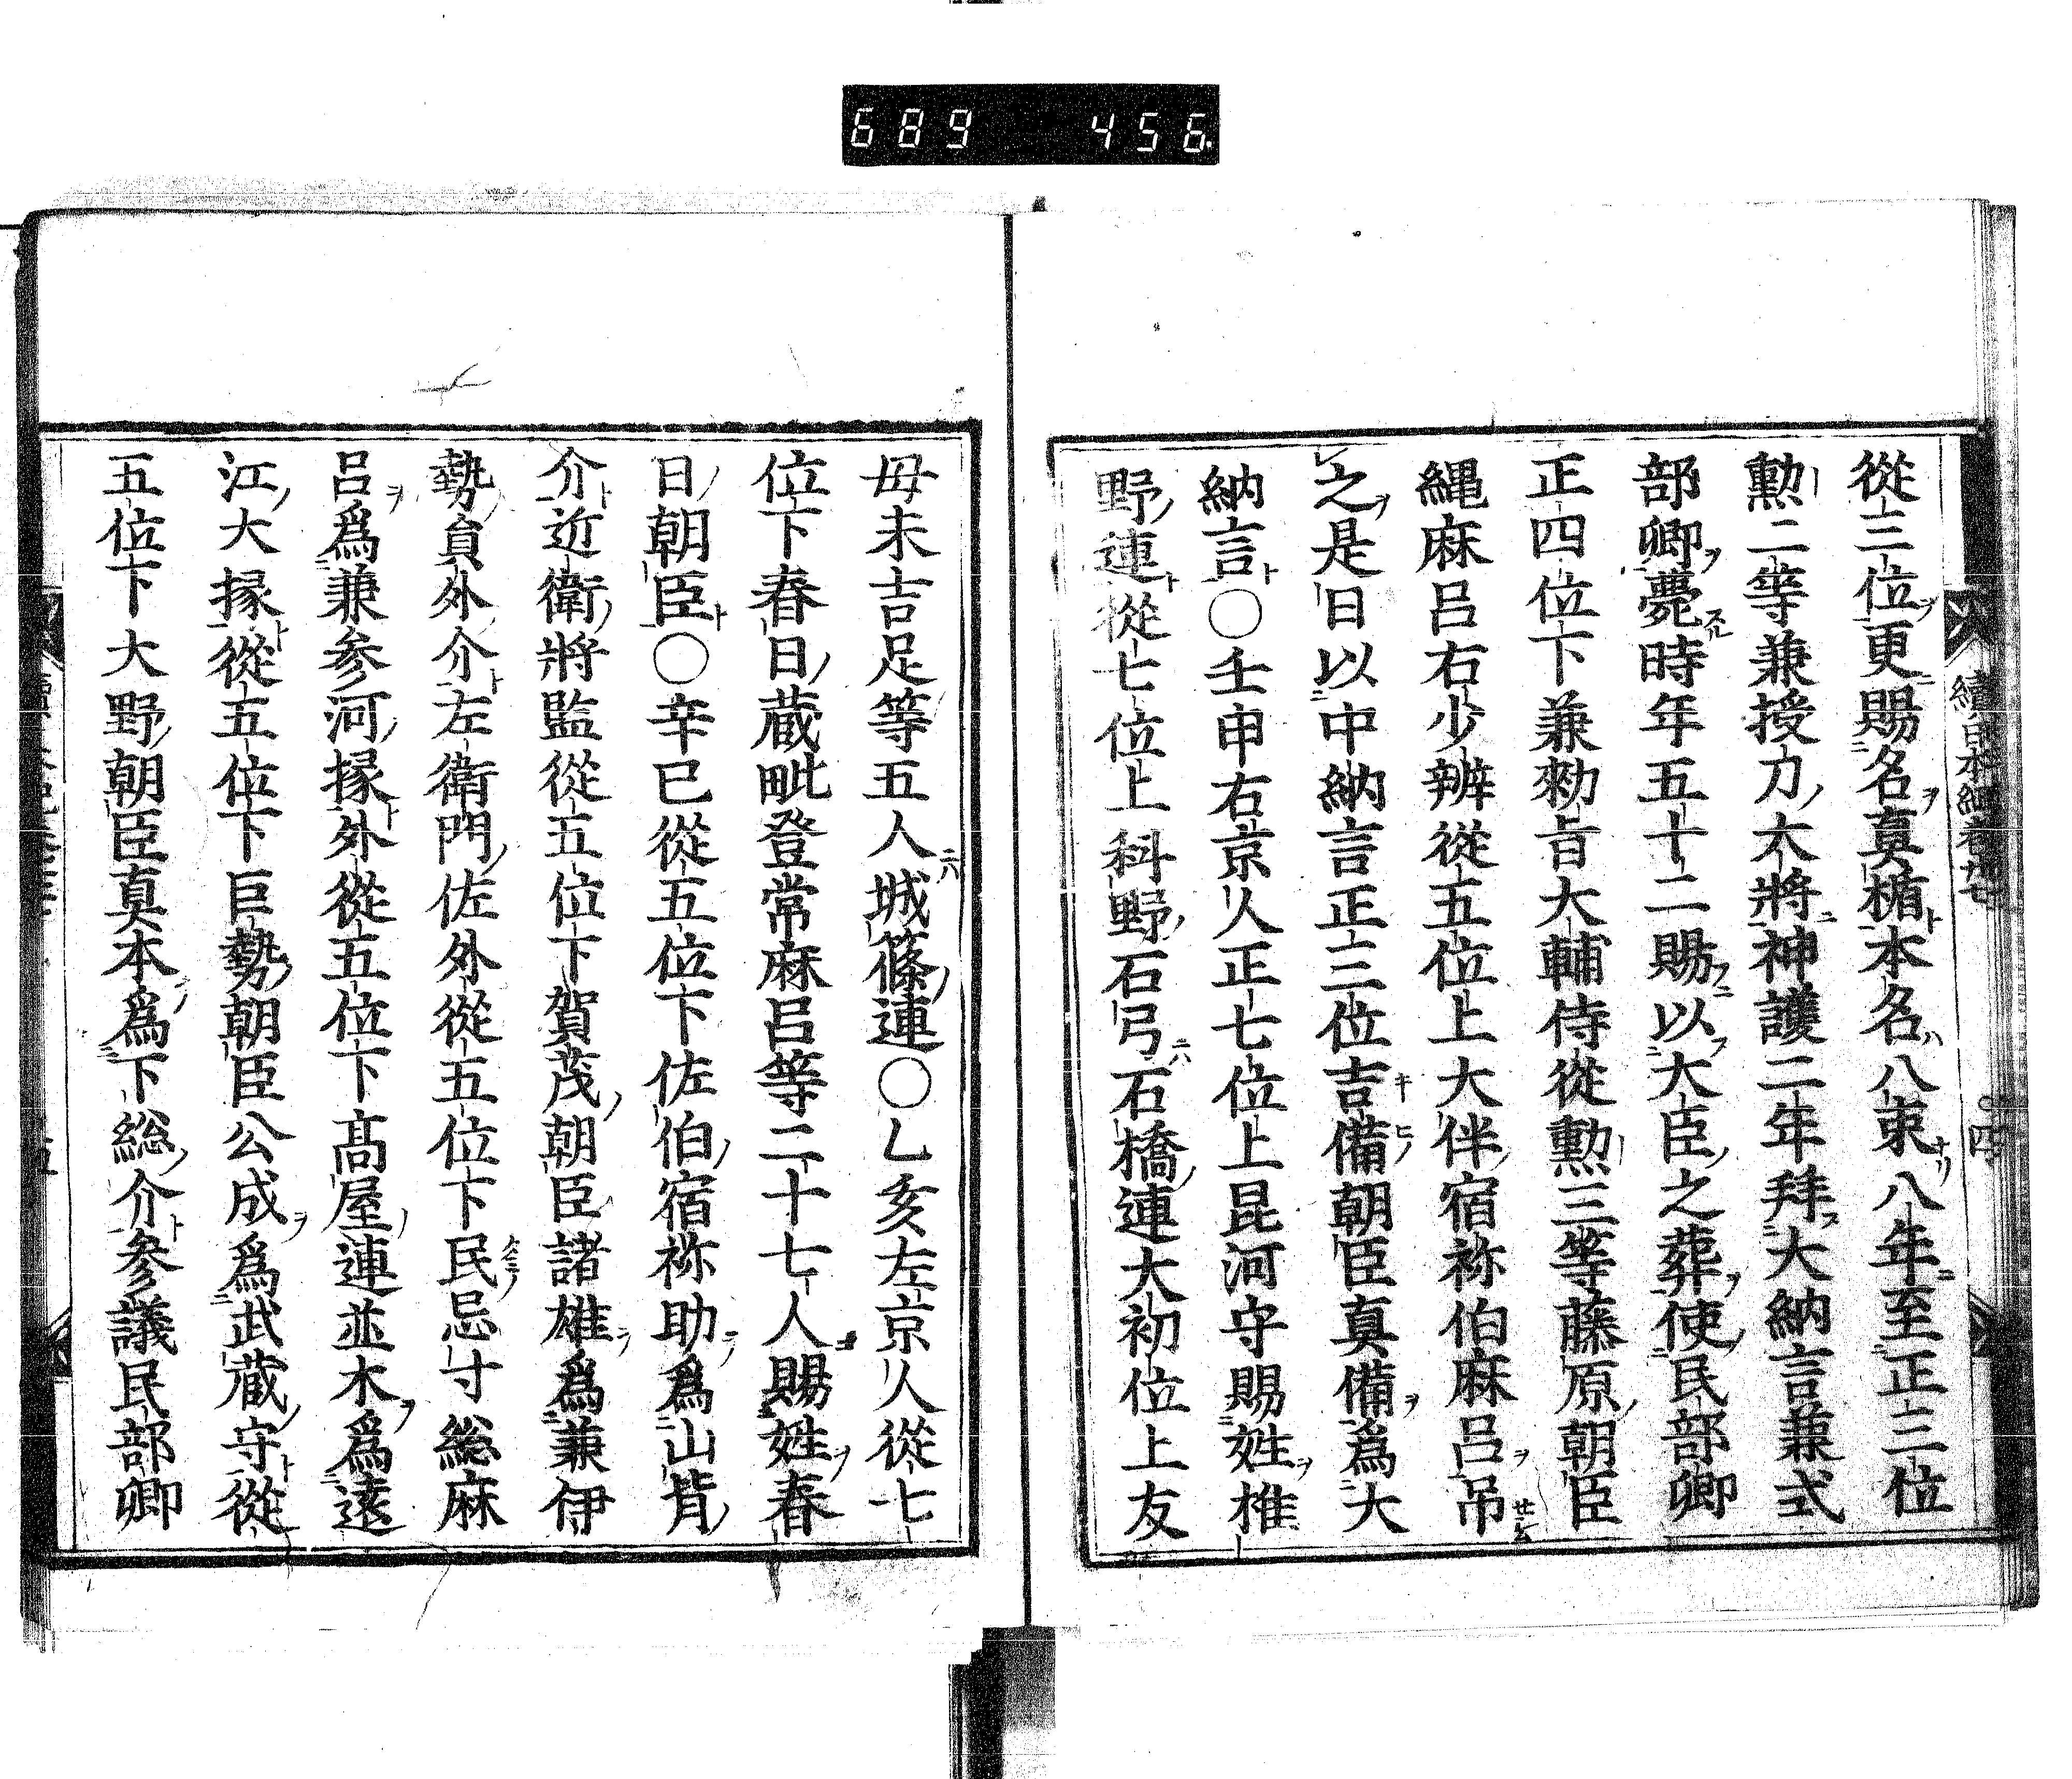 689 456
續日本紀卷廿七
四
從三位更賜名真楯本名八束八年至正三位
勲二等兼授刀大將神護二年拜大納言兼式
部卿薨時年五十二賜以大臣之葬使民部卿
正四位下兼勅旨大輔侍從勲三等藤原朝臣
縄麻呂右少辨從五位上大伴宿祢伯麻呂吊
之是日以中納言正三位吉備朝臣真備爲大
納言○壬申右京人正七位上昆河守賜姓椎
野連從七位上科野石弓石橋連大初位上友
毋未吉足等五人城篠連○乙亥左京人從七
位下春日蔵毗登常麻呂等二十七人賜姓春
日朝臣○辛巳從五位下佐伯宿祢助爲山背
介近衛將監從五位下賀茂朝臣諸雄爲兼伊
勢員外介左衛門佐外從五位下民忌寸総麻
呂爲兼参河掾外從五位下髙屋連並木爲遠
江大掾從五位下巨勢朝臣公成爲武蔵守從
五位下大野朝臣真本爲下総介参議民部卿